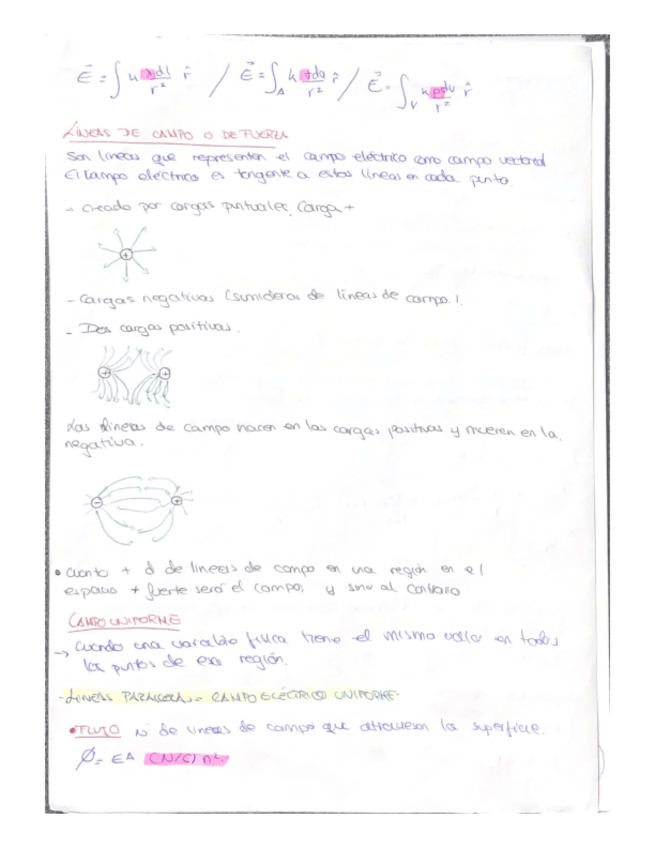 E⃗ = ∫ k λdl/r² r̂ / E⃗ = ∫_A k σda/r² r̂ / E⃗ = ∫_V k ρdv/r² r̂
LÍNEAS DE CAMPO O DE FUERZA
Son lineas que representan el campo eléctrico como campo vectorial
El campo eléctrico es tangente a estas líneas en cada punto.
→ Creado por cargas puntuales. Carga +
+
- Cargas negativas (sumideros de líneas de campo).
- Dos cargas positivas.
+ +
Las líneas de campo nacen en las cargas positivas y mueren en la
negativa.
- +
• Cuanto + d de lineas de campo en una región en el
espacio + fuerte será el campo, y sino al contrario
CAMPO UNIFORME
→ Cuando una variable física tiene el mismo valor en todos
los puntos de esa región.
- LINEAS PARALELAS = CAMPO ELÉCTRICO UNIFORME.
• FLUJO Nº de lineas de campo que atraviesan la superficie.
Ø = EA (N/C) m².